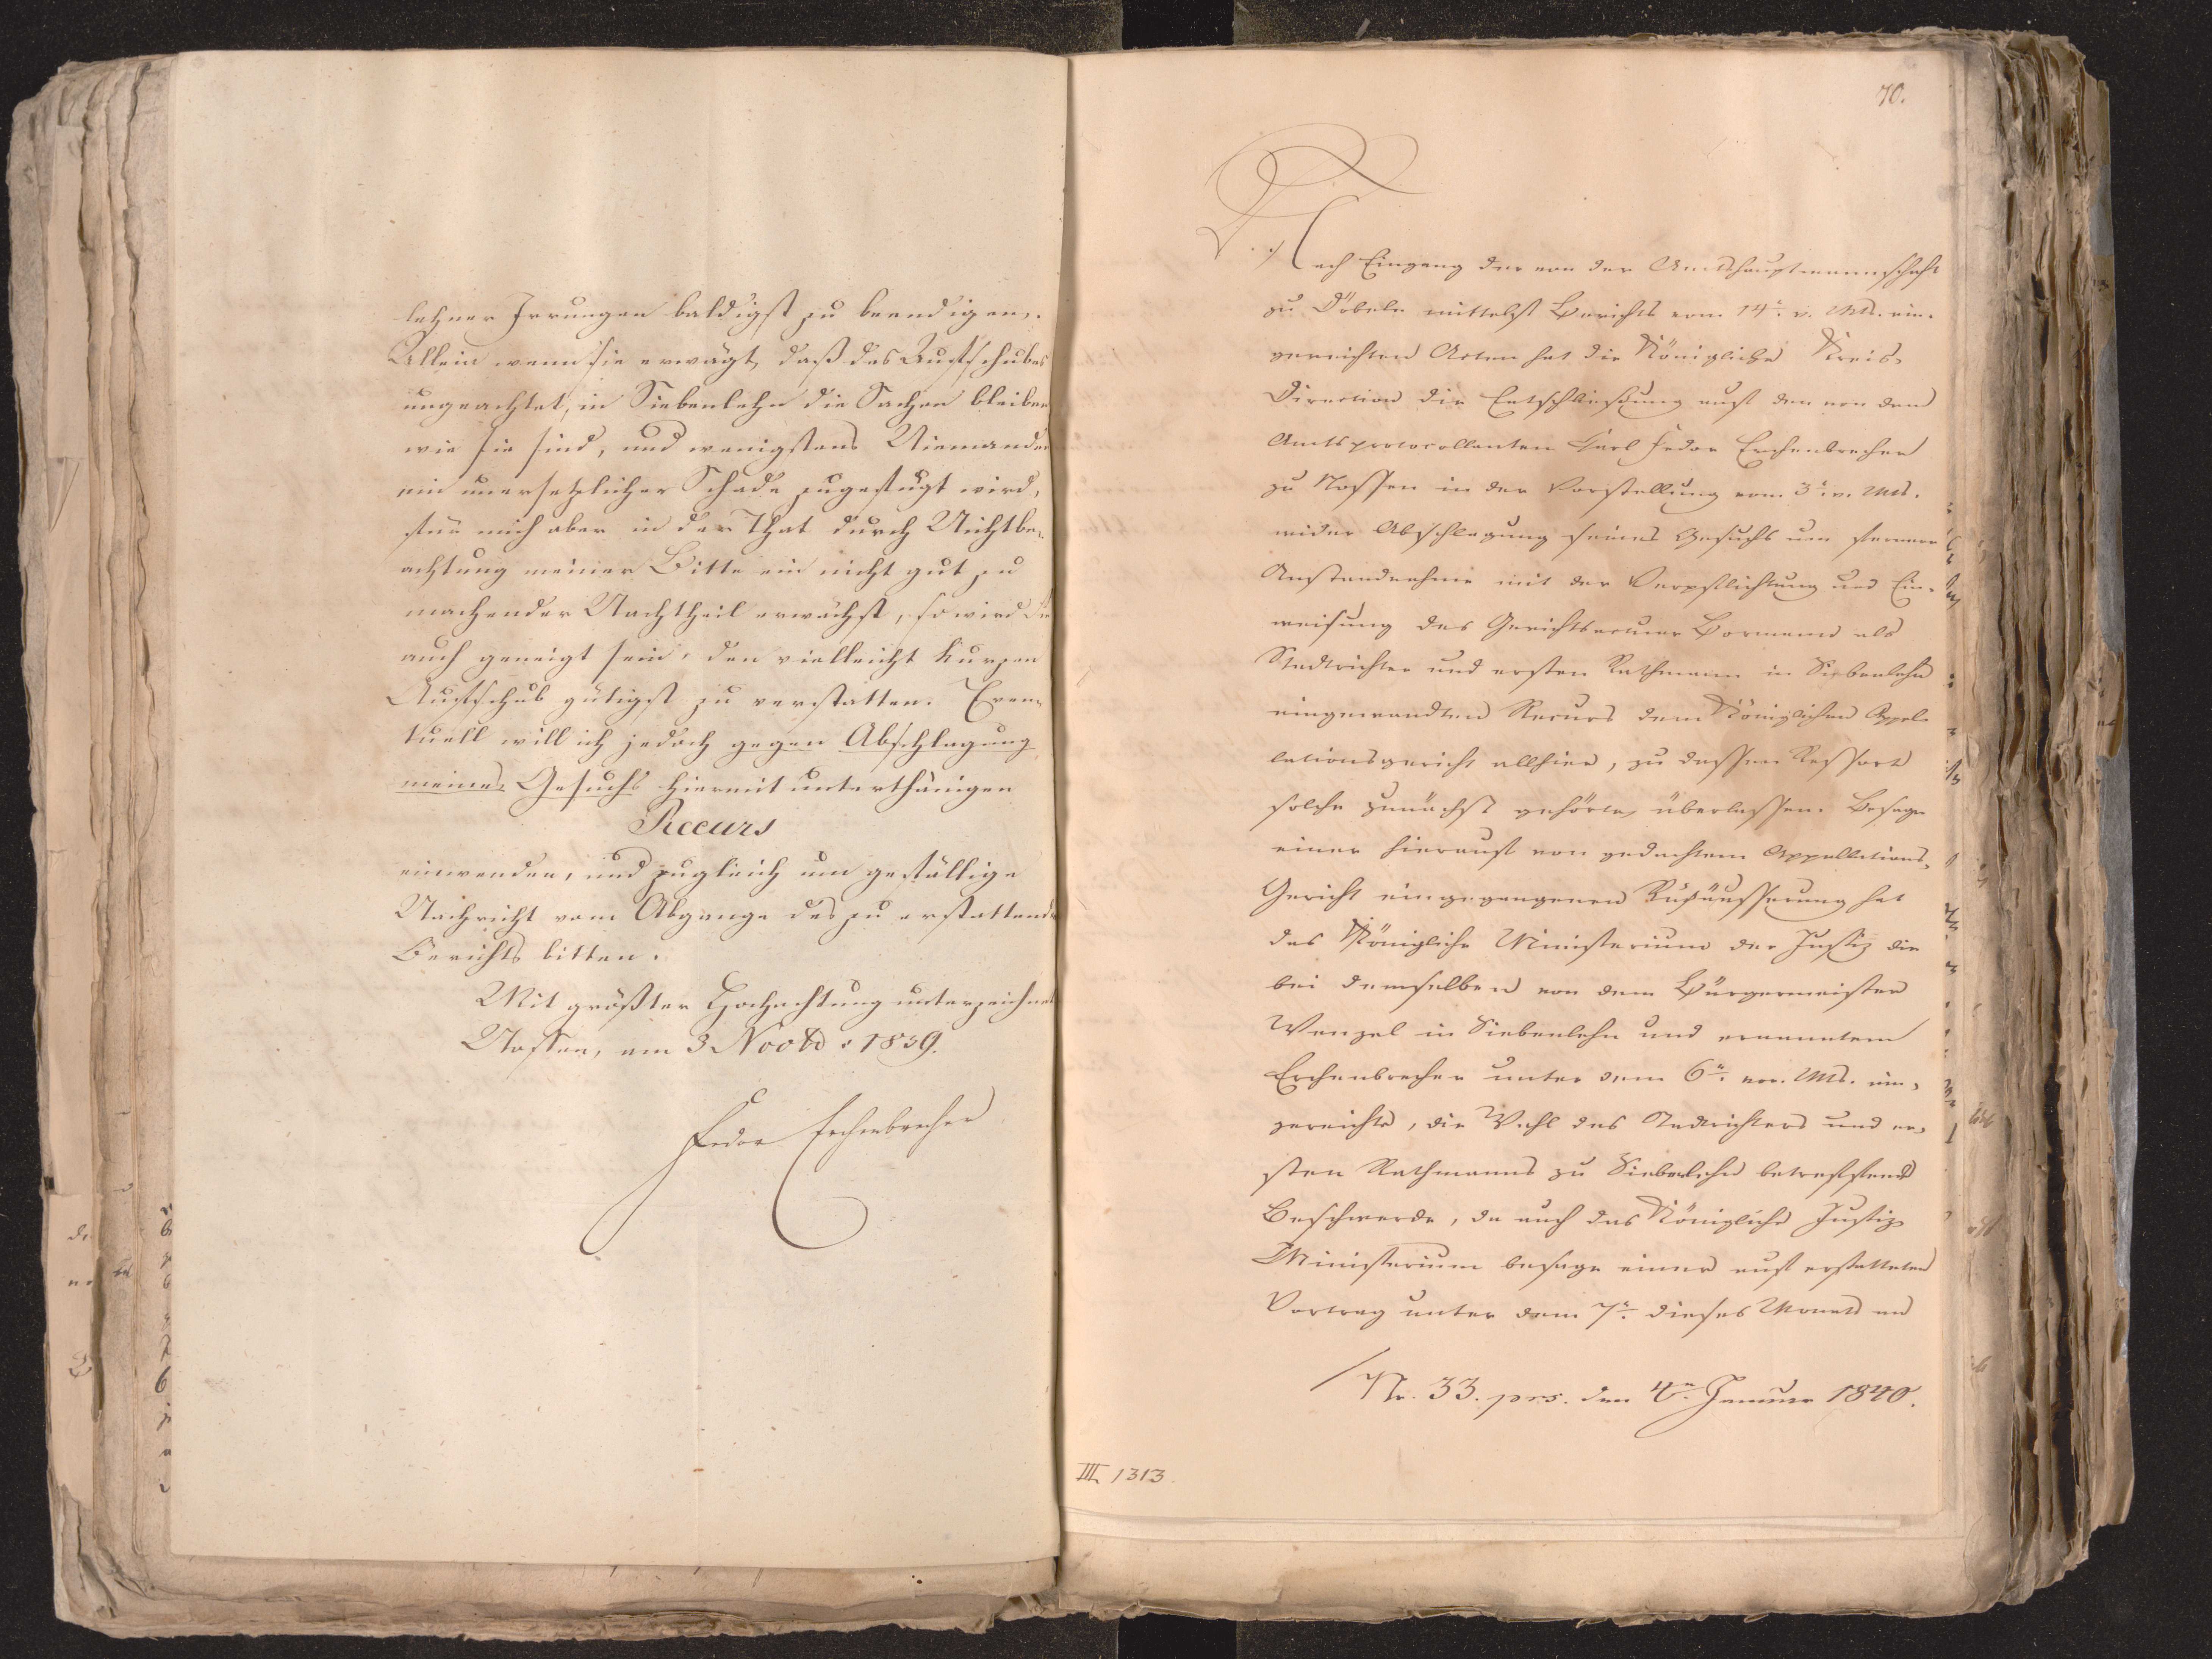 lehner Irrungen baldigst zu beendigen.
Allein wenn sie erwägt, daß des Aufschubes
ungeachtet, in Siebenlehn die Sachen bleiben
wie sie sind, und wenigstens Niemanden
ein unersetzlicher Schade zugefügt wird,
für mich aber in der That durch Nichtbe-
achtung meiner Bitte ein nicht gut zu
machender Nachtheil erwächst, so wird Sie
auch geneigt sein, den vielleicht kurzen
Aufschub gütigst zu verstatten. Even-
tuell will ich jedoch gegen Abschlagung
meines Gesuchs hiermit unterthänigen
Recurs
einwenden, und zugleich um gefällige
Nachricht vom Abgange des zu erstattenden
Berichts bitten.
Mit größter Hochachtung unterzeichnet
Nossen, am 3 Novbr. 1839.
Fedor Erchenbrecher
70.
Nach Eingang der von der Amtshauptmannschaft
zu Döbeln mittelst Berichts vom 14n. v. Mts. ein-
gereichten Acten hat die Königliche Kreis-
Direction die Entschließung auf den von dem
Amtsprotocollanten Carl Fedor Erchenbrecher
zu Nossen in der Vorstellung vom 3n. v. Mts.
wider Abschlagung seines Gesuchs um fernere
Anstandnahme mit der Verpflichtung und Ein-
weisung des Gerichtsactuar Bormann als
Stadtrichter und ersten Rathmann in Siebenlehn
eingewandten Recurs dem Königlichen Appel-
lationsgericht allhier, zu dessen Ressort
solche zunächst gehörte, überlassen. Besage
einer hierauf von gedachtem Appellations-
Gericht eingegangenen Rückäusserung hat
das Königliche Ministerium der Justiz die
bei demselben von dem Bürgermeister
Wenzel in Siebenlehn und ernanntem
Erchenbrecher unter dem 6n. vor. Mts. ein-
gereichte, die Wahl des Stadtrichters und er-
sten Rathmanns zu Siebenlehn betreffende
Beschwerde, da auch das Königliche Justiz
Ministerium besage einer auf erstatteten
Vortrag unter dem 7n. dieses Monats an
Nr. 33. prs. den 4n. Januar 1840.
III. 1313.